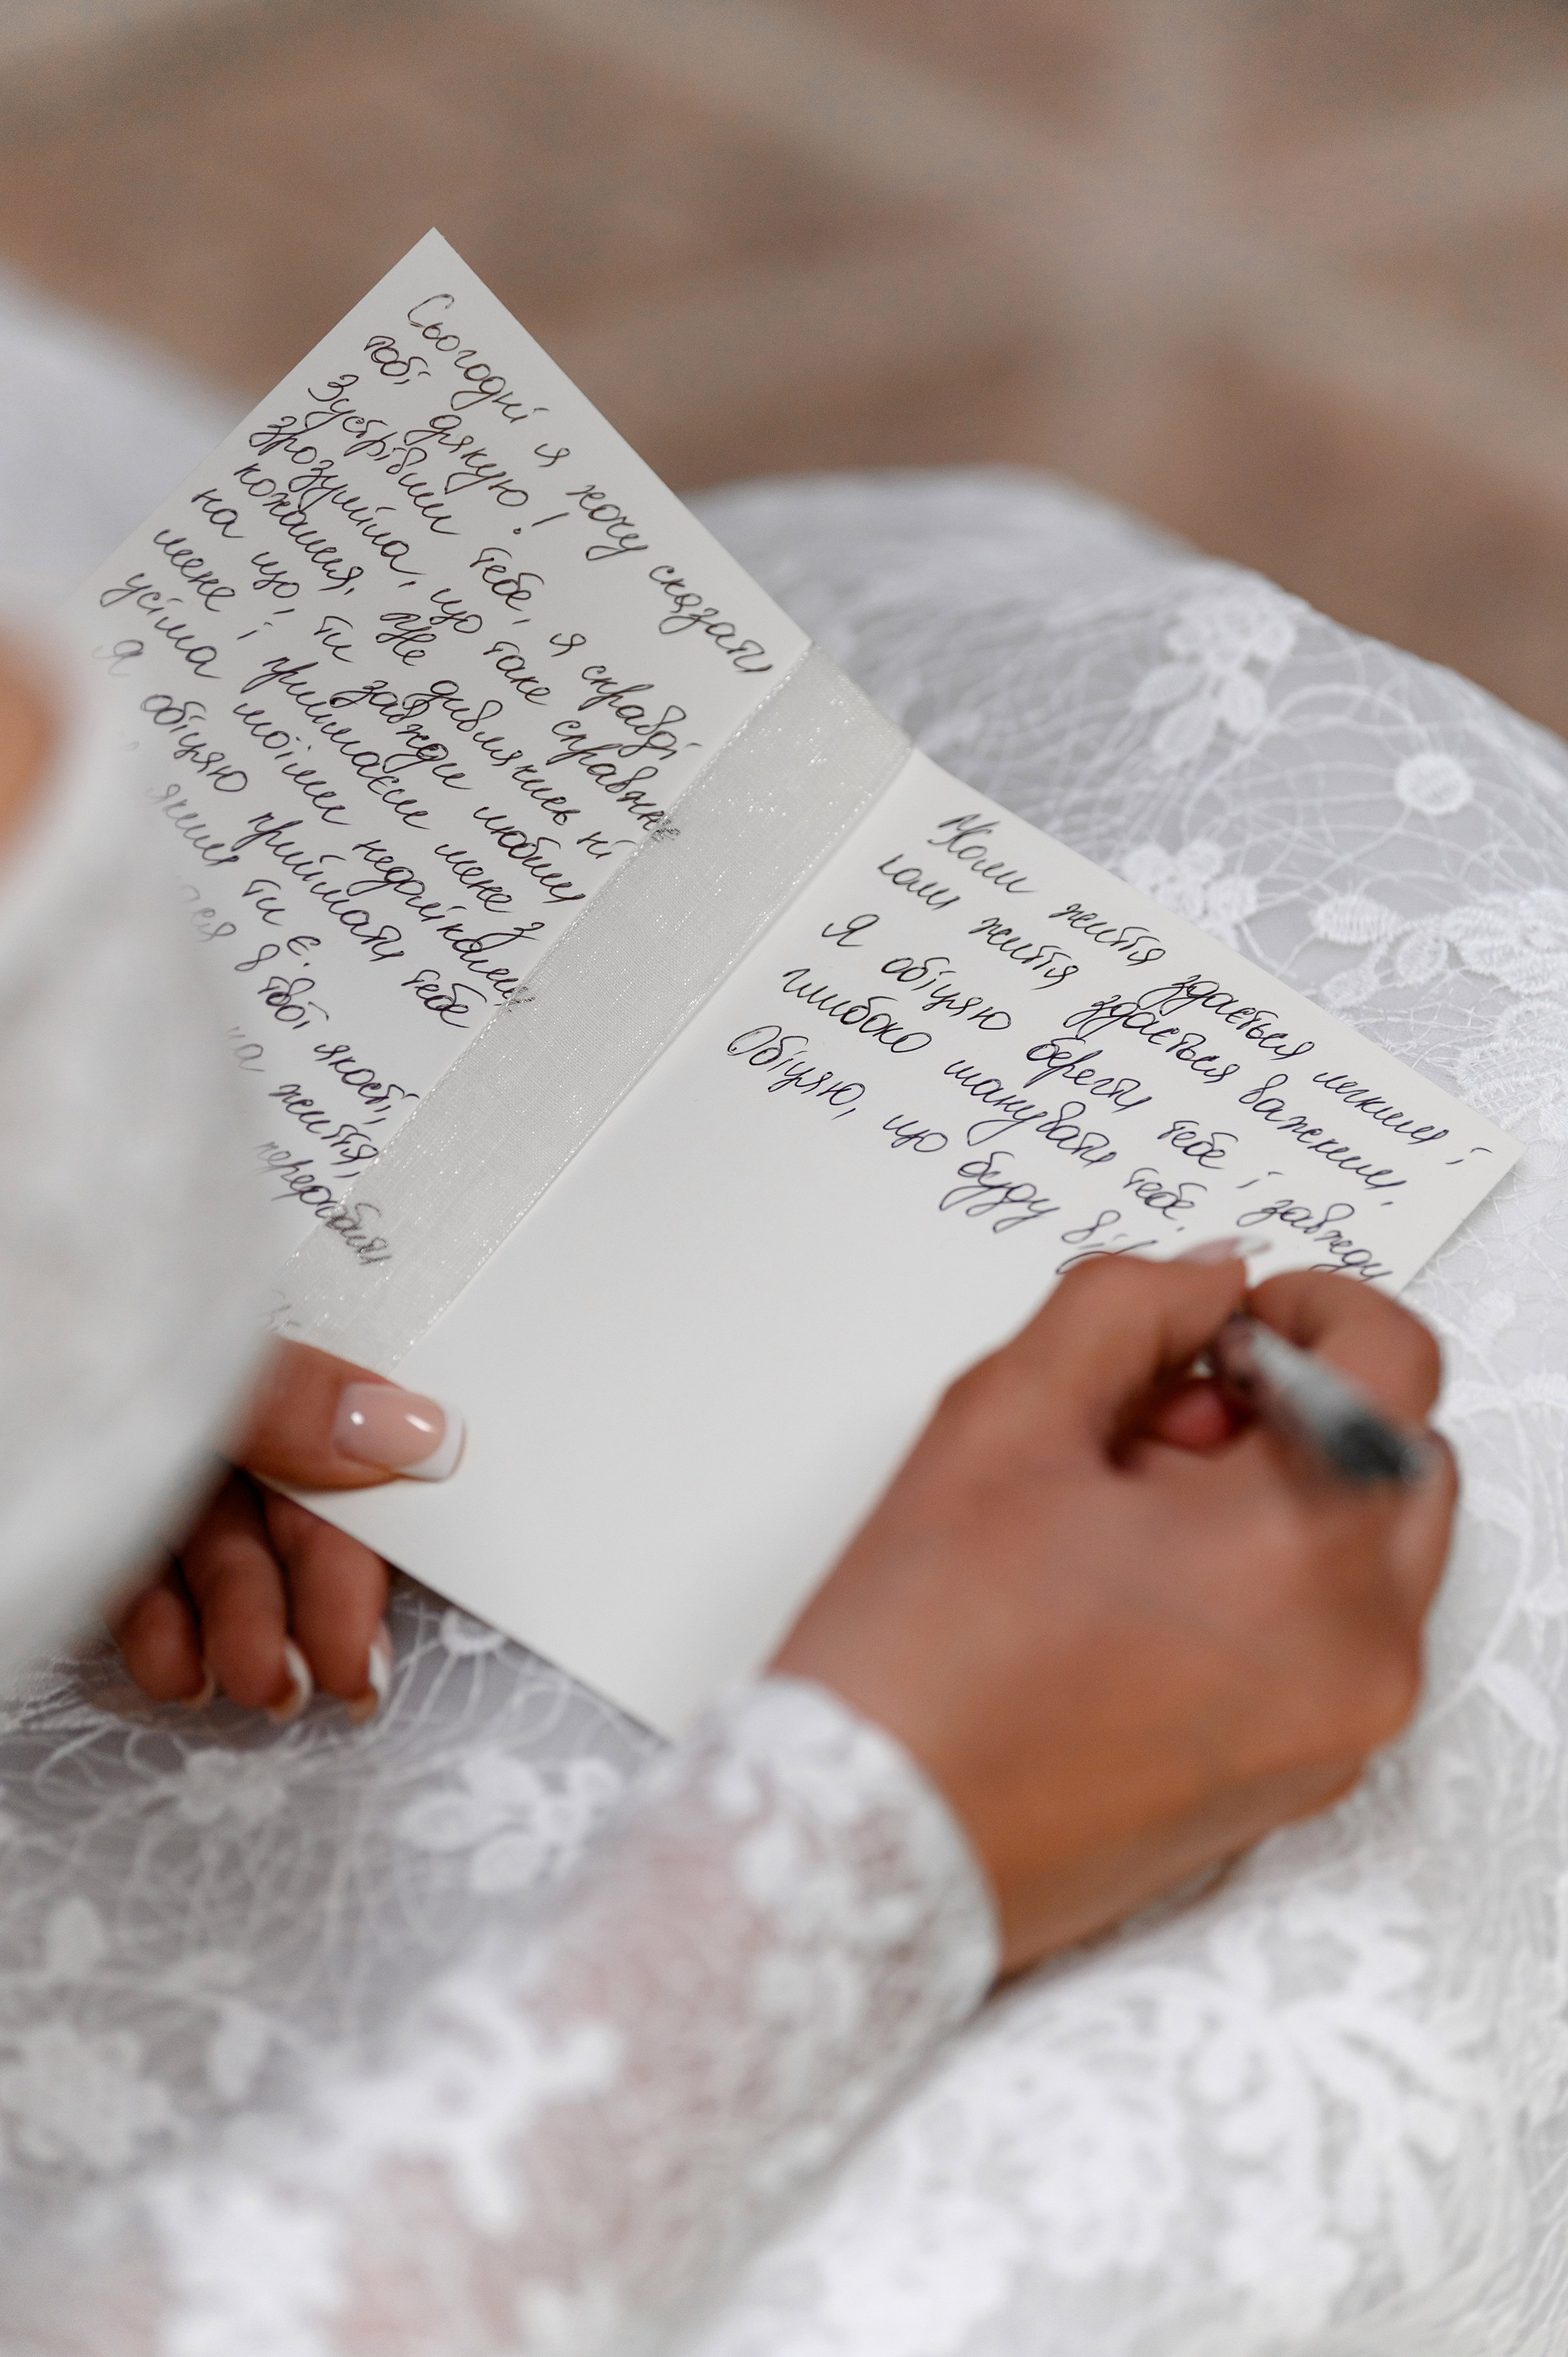 Сьогодні я хочу сказати
тобі дякую!
Зустрівши тебе, я справді
зрозуміла, що таке справжнє
кохання. Не дивлячись ні
на що, ти завжди любиш
мене і приймаєш мене з
усіма моїми недоліками
Я обіцяю приймати тебе
яким ти є.
в твої якості,
на життя,
переробити
Коли життя здається легким і
коли життя здається важким.
Я обіцяю берегти тебе і завжди
глибоко шанувати тебе.
Обіцяю, що буду